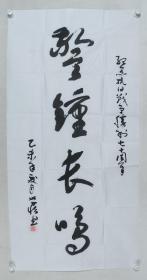 纪念抗日战争胜利七十周年
警鐘長鳴
乙未年